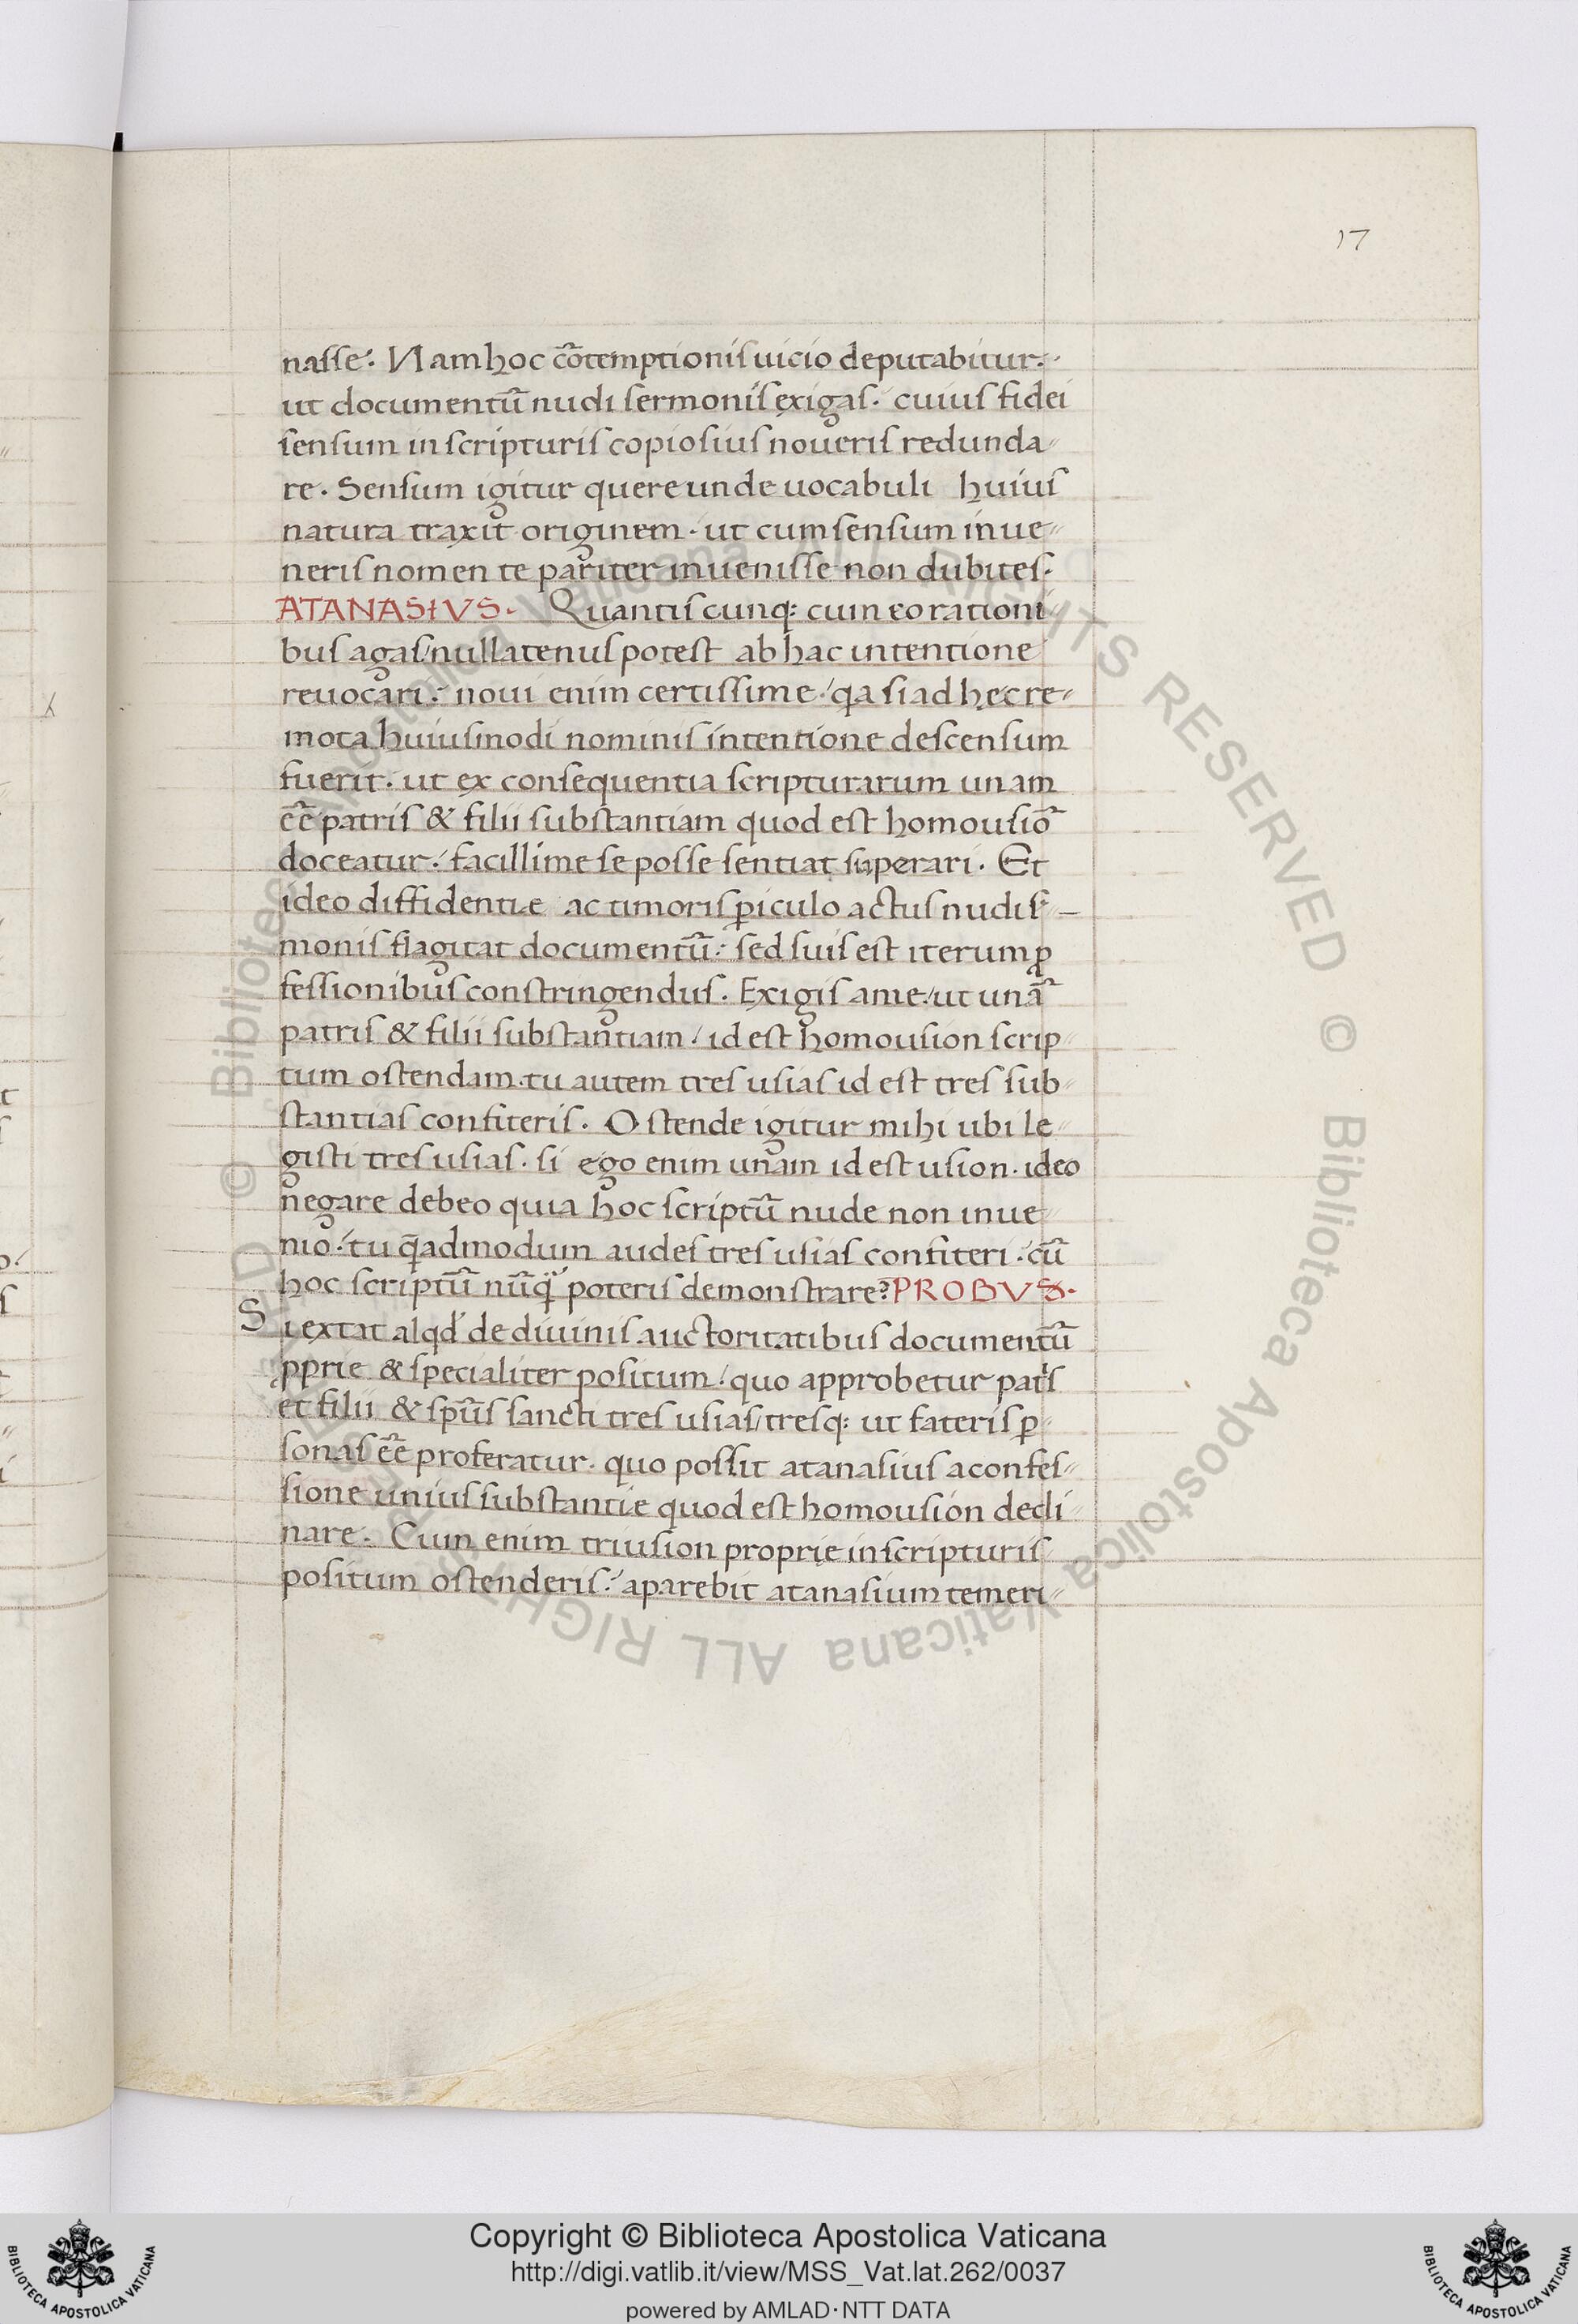 17
nasse. Nam hoc cõtemptionis uicio deputabitur.
ut documentũ nudi sermonis exigas. cuius fidei
sensum in scripturis copiosius noueris redunda
re. Sensum igitur quere unde uocabuli huius
natura traxit originem. ut cum sensum inue
neris nomen te pariter inuenisse non dubites.
ATANASIVS. Quantiscunq; cum eo rationi
bus agas/ nullatenus potest ab hac intentione
reuocari. noui enim certissime/ qa si ad hec re
mota huiusmodi nominis intentione descensum
fuerit. ut ex consequentia scripturarum unam
eẽ patris & filii substantiam quod est homousiõ
doceatur/ facillime se posse sentiat superari. Et
ideo diffidentie ac timoris ꝑiculo actus nudi s̄
monis flagitat documentũ. sed suis est iterum ꝓ
fessionibus constringendus. Exigis a me/ ut unã
patris & filii substantiam/ id est homousion scrip
tum ostendam. tu autem tres usias id est tres sub
stantias confiteris. Ostende igitur mihi ubi le
gisti tres usias. si ego enim unam id est usion. ideo
negare debeo quia hoc scriptũ nude non inue
nio/ tu q̃admodum audes tres usias confiteri/ cũ
hoc scriptũ nũq̃ poteris demonstrare? PROBVS.
Si extat alqd de diuinis auctoritatibus documentũ
ꝓprie & specialiter positum/ quo approbetur patis
et filii & spũs sancti tres usias/ tresq; ut fateris ꝑ
sonas eẽ proferatur. quo possit atanasius a confes
sione unius substantie quod est homousion decli
nare. Cum enim triusion proprie in scripturis
positum ostenderis/ aparebit atanasium temeri
© Biblioteca Apostolica Vaticana ALL RIGHTS RESERVED
Copyright © Biblioteca Apostolica Vaticana
http://digi.vatlib.it/view/MSS_Vat.lat.262/0037
powered by AMLAD·NTT DATA
BIBLIOTECA APOSTOLICA VATICANA
BIBLIOTECA APOSTOLICA VATICANA